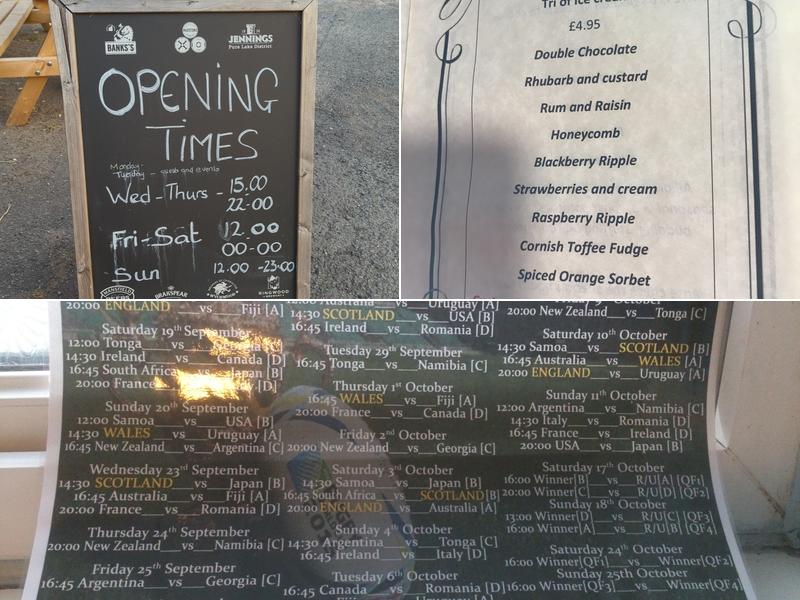 BANK'S
JENNINGS
Pure Lake District
OPENING
TIMES
Monday-
Tuesday -
and events
Wed-Thurs - 15.00
22.00
Fri-Sat 12.00
00-00
Sun 12.00 -23:00
MANSFIELD
BRAKSPEAR
RINGWOOD
Tri of Ice
£4.95
Double Chocolate
Rhubarb and custard
Rum and Raisin
Honeycomb
Blackberry Ripple
Strawberries and cream
Raspberry Ripple
Cornish Toffee Fudge
Spiced Orange Sorbet
20:00 ENGLAND vs Fiji [A]
Saturday 19th September
12:00 Tonga vs
14:30 Ireland vs Canada [D]
16:45 South Africa vs Japan [B]
20:00 France [D]
Sunday 20th September
12:00 Samoa vs USA [B]
14:30 WALES vs Uruguay [A]
16:45 New Zealand vs Argentina [C]
Wednesday 23rd September
14:30 SCOTLAND vs Japan [B]
16:45 Australia vs Fiji [A]
20:00 France vs Romania [D]
Thursday 24th September
20:00 New Zealand vs Namibia [C]
Friday 25th September
16:45 Argentina vs Georgia [C]
12:00 Australia vs Uruguay [A]
14:30 SCOTLAND vs USA [B]
16:45 Ireland vs Romania [D]
Tuesday 29th September
16:45 Tonga vs Namibia [C]
Thursday 1st October
16:45 WALES vs Fiji [A]
20:00 France vs Canada [D]
Friday 2nd October
20:00 New Zealand vs Georgia [C]
Saturday 3rd October
14:30 Samoa vs Japan [B]
16:45 South Africa vs SCOTLAND [B]
20:00 ENGLAND vs Australia [A]
Sunday 4th October
14:30 Argentina vs Tonga [C]
16:45 Ireland vs Italy [D]
Tuesday 6th October
16:45 Canada vs Romania [D]
Uruguay [A]
October
20:00 New Zealand vs Tonga [C]
Saturday 10th October
14:30 Samoa vs SCOTLAND [B]
16:45 Australia vs WALES [A]
20:00 ENGLAND vs Uruguay [A]
Sunday 11th October
12:00 Argentina vs Namibia [C]
14:30 Italy vs Romania [D]
16:45 France vs Ireland [D]
20:00 USA vs Japan [B]
Saturday 17th October
16:00 Winner[B] vs R/U[A] [QF1]
20:00 Winner[C] vs R/U[D] [QF2]
Sunday 18th October
13:00 Winner[D] vs R/U[C] [QF3]
16:00 Winner[A] vs R/U[B] [QF4]
Saturday 24th October
16:00 Winner[QF1] vs Winner[QF2]
Sunday 25th October
16:00 Winner[QF3] vs Winner[QF4]